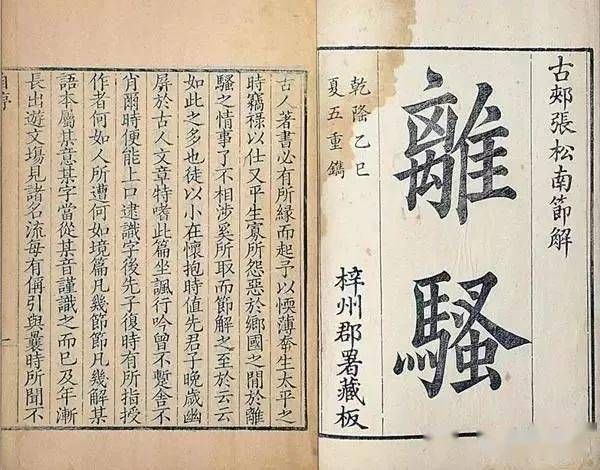 古郟張松南節解
離騷
乾隆乙巳
夏五重鐫
梓州郡署藏板
古人著書必有所緣而起予以愞薄幸生太平之
時竊祿以仕又平生寡所怨惡於鄉國之閒於離
騷之情事了不相涉奚所取而節解之至於云云
如此之多也徒以小在懷抱時值先君子晚歲幽
屏於古人文章特嗜此篇坐諷行吟曾不蹔舍不
肖爾時便能上口逮識字後先子復時有所指授
作者何如人所遭何如境篇凡幾節節凡幾解某
語本屬某意某字當從某音謹識之而已及年漸
長出遊文塲見諸名流每有稱引與曩時所聞不